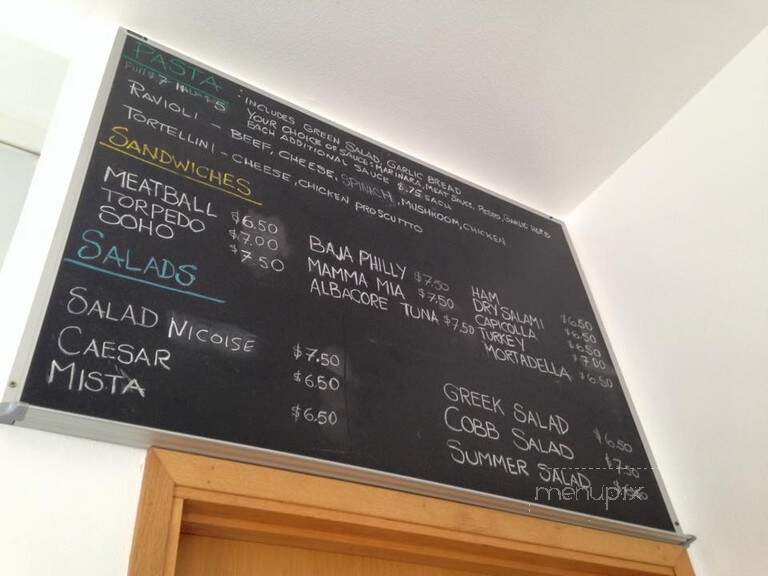 PASTA : INCLUDES GREEN SALAD, GARLIC BREAD
YOUR CHOICE OF SAUCE: MARINARA, MEAT SAUCE, PESTO, GARLIC HERB
EACH ADDITIONAL SAUCE $.75 EACH
RAVIOLI - BEEF, CHEESE, SPINACH, MUSHROOM, CHICKEN
TORTELLINI - CHEESE, CHICKEN PROSCUITTO
SANDWICHES
MEATBALL $6.50
TORPEDO $7.00
SOHO $7.50
BAJA PHILLY $7.50
MAMMA MIA $7.50
ALBACORE TUNA $7.50
HAM $6.50
DRY SALAMI $6.50
CAPICOLLA $6.50
TURKEY $7.00
MORTADELLA $6.50
SALADS
SALAD NICOISE $7.50
CAESAR $6.50
MISTA $6.50
GREEK SALAD $6.50
COBB SALAD $7.50
SUMMER SALAD
menupix